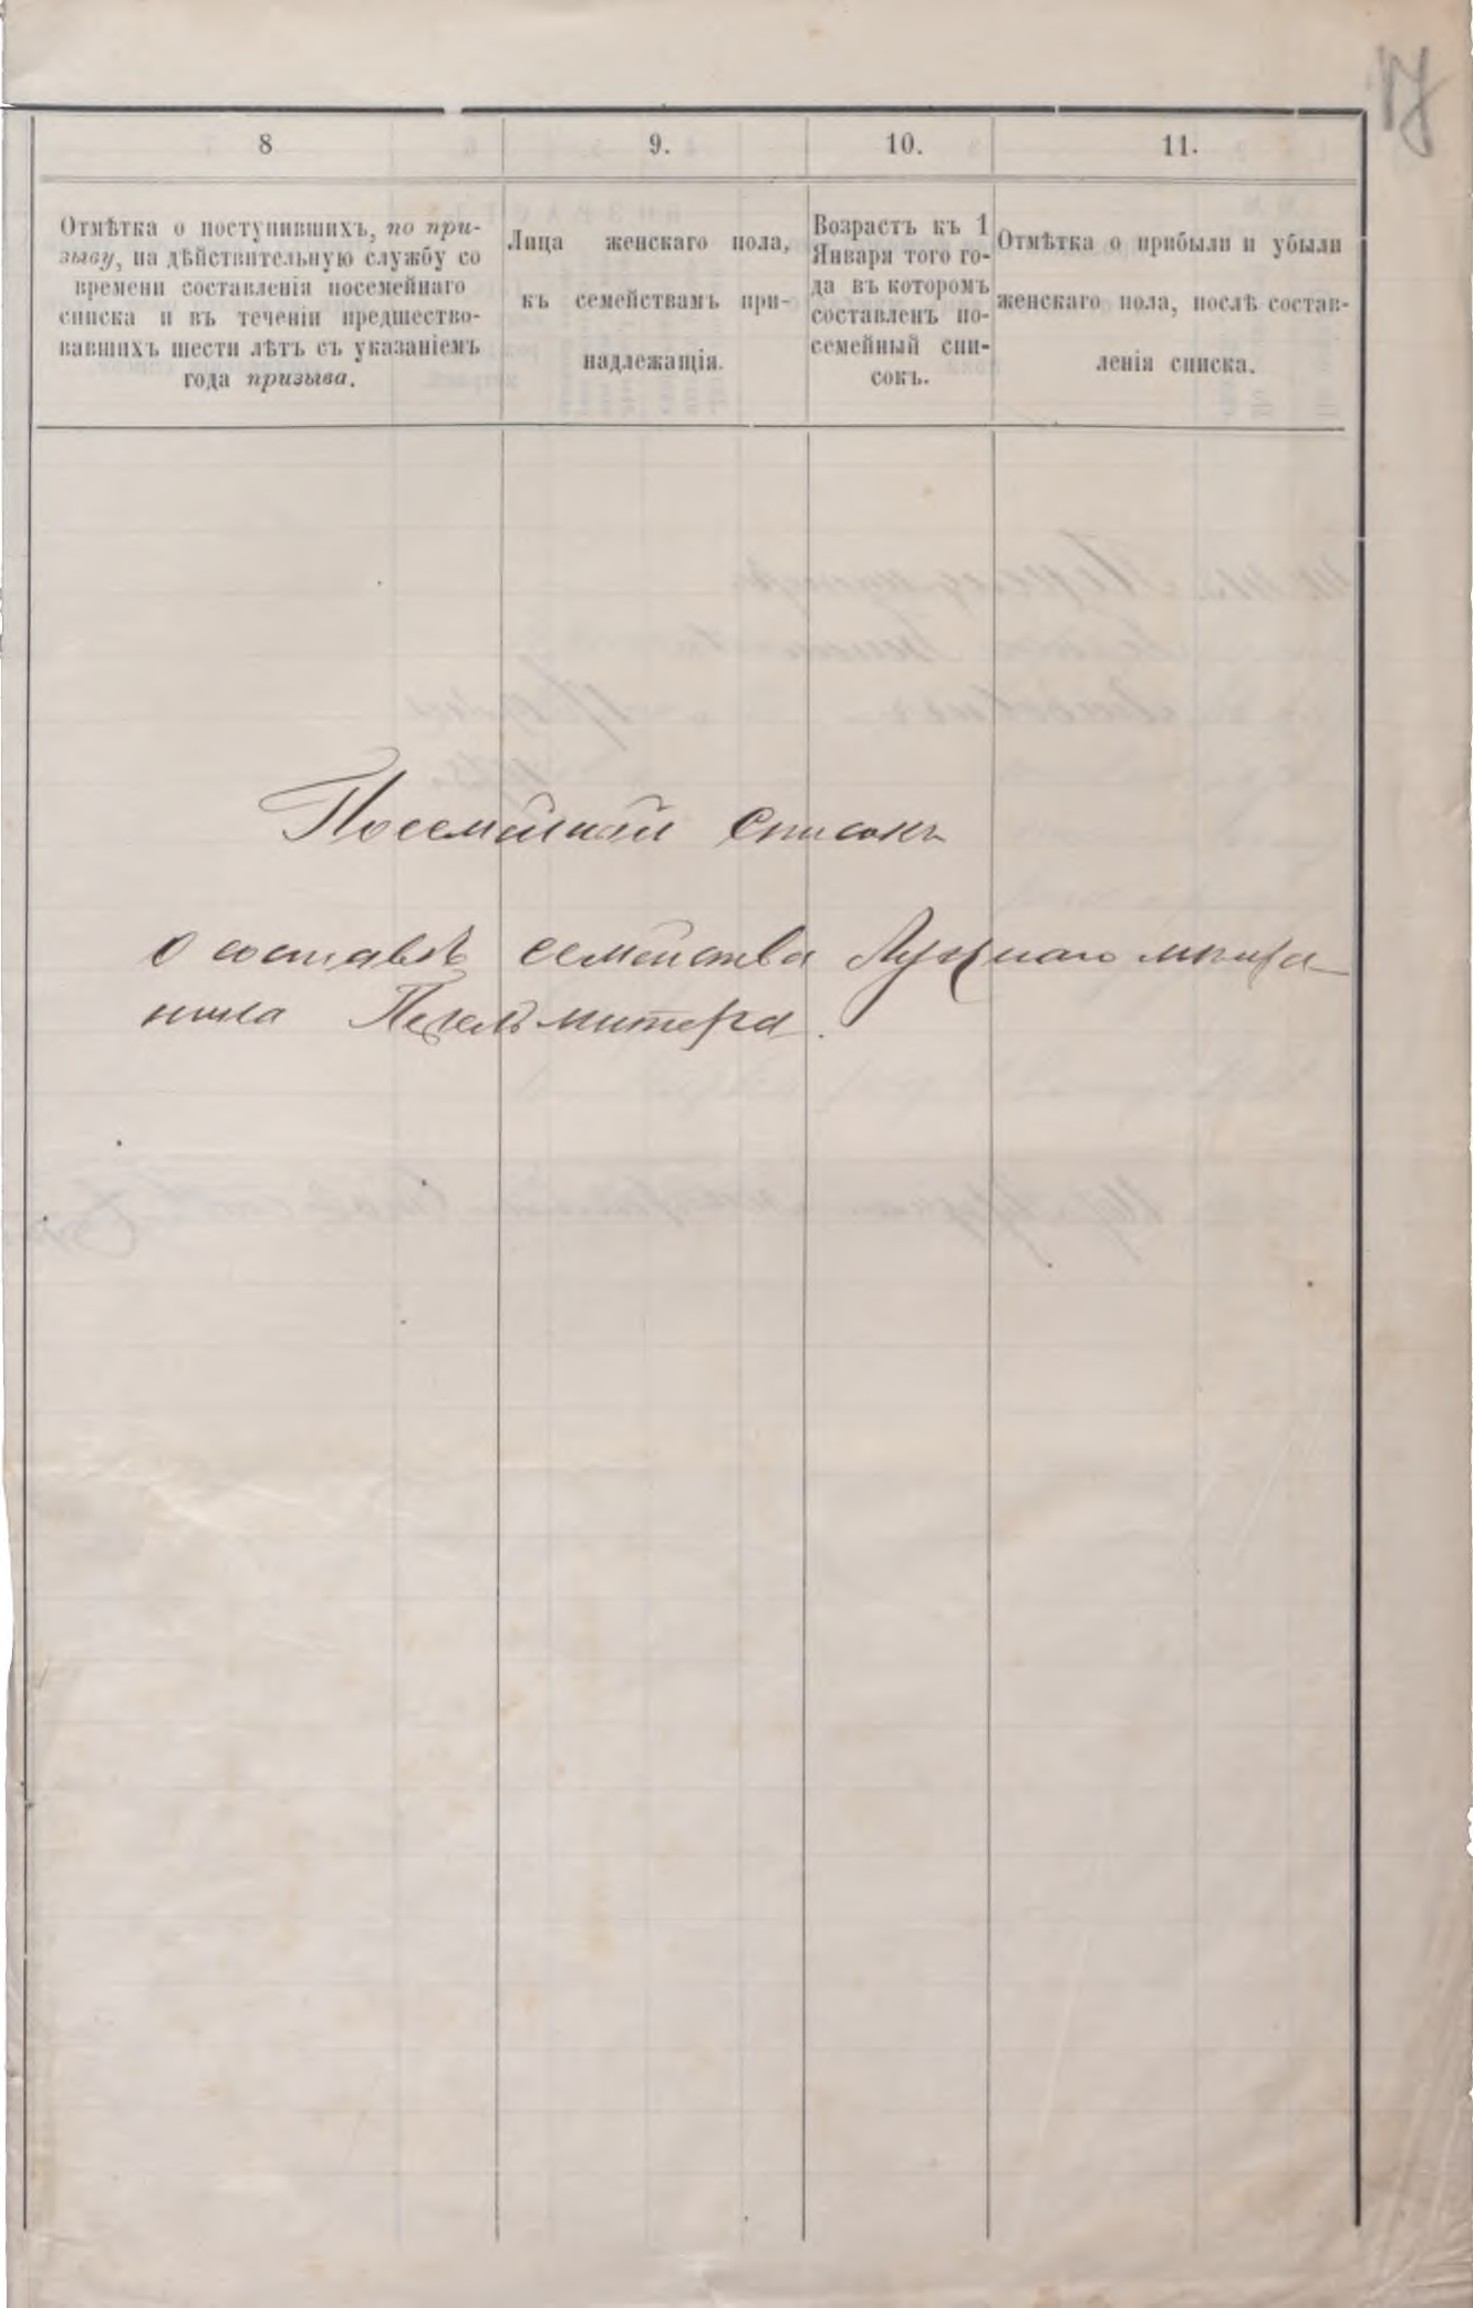 17
8
9.
10.
11.
Отмѣтка о поступившихъ, по при-
зыву, на дѣйствительную службу со
времени составленія посемейнаго
списка и въ теченіи предшество-
вавшихъ шести лѣтъ съ указаніемъ
года призыва.
Лица женскаго пола,
къ семействамъ при-
надлежащія.
Возрастъ къ 1
Января того го-
да въ которомъ
составленъ по-
семейный спи-
сокъ.
Отмѣтка о прибыли и убыли
женскаго пола, послѣ состав-
ленія списка.
Посемейный списокъ
о составѣ семейства Луцкаго мѣща-
нина Пекельмитера.